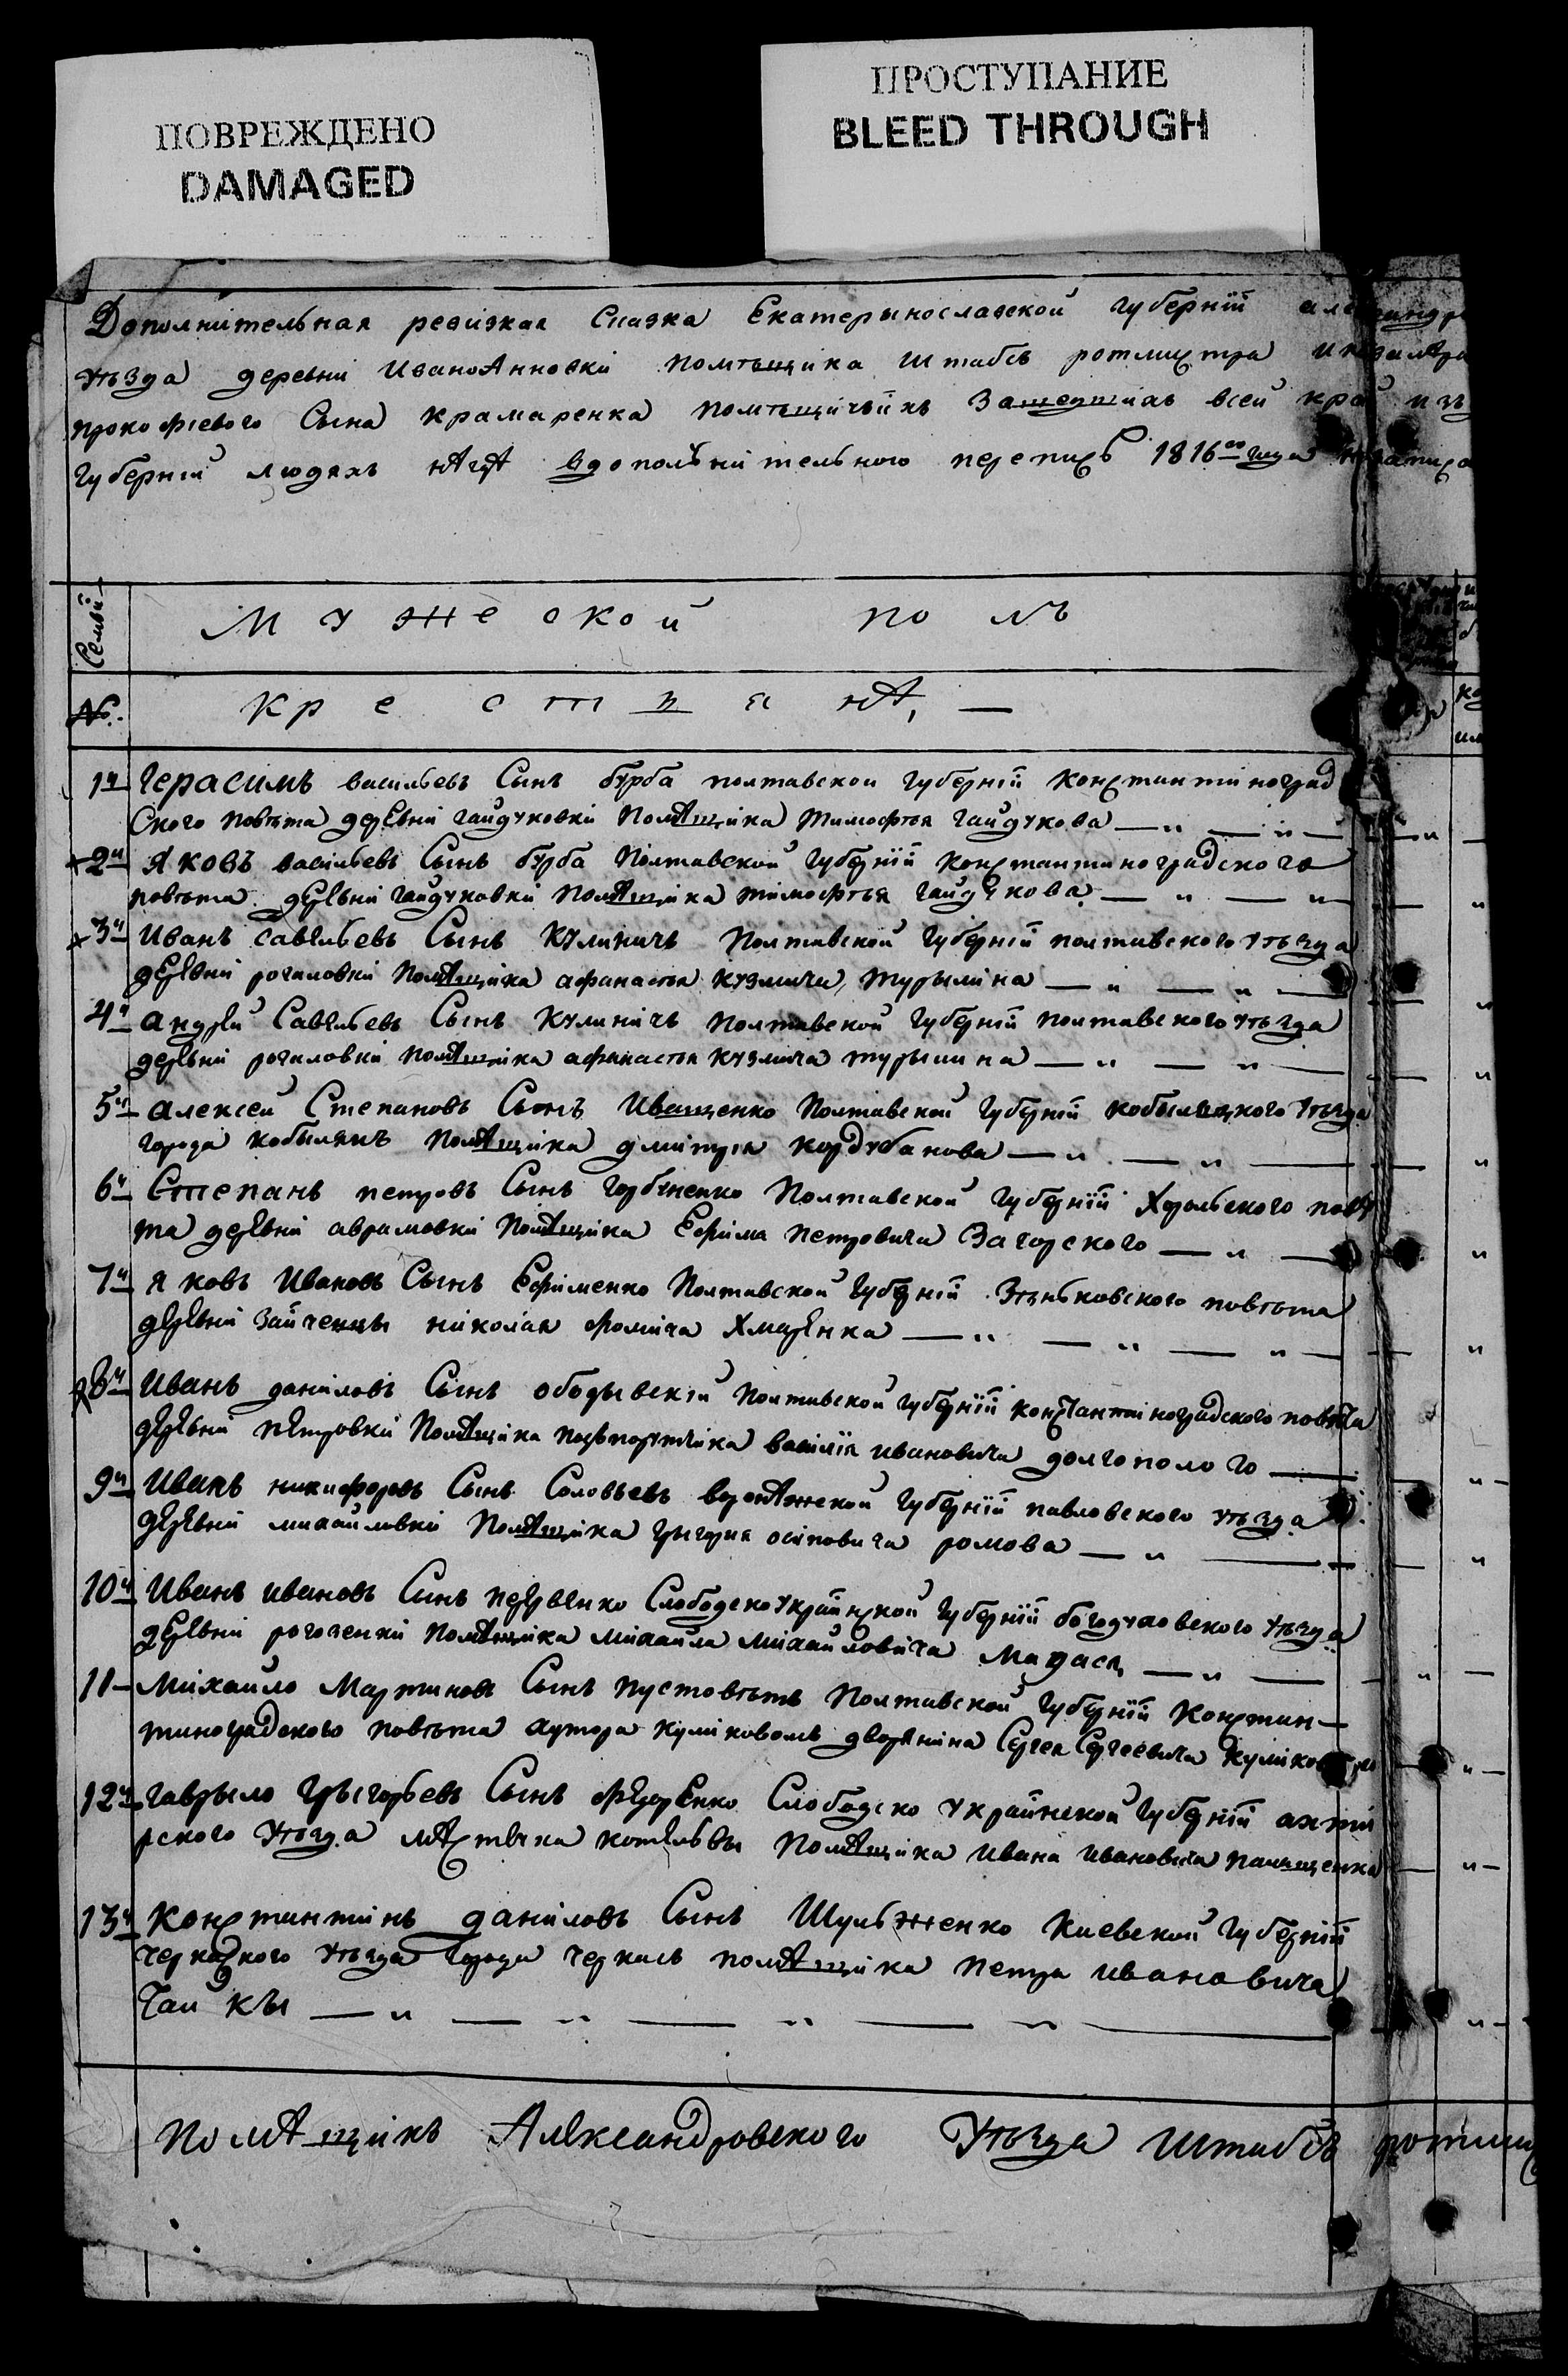 ПОВРЕЖДЕНО
DAMAGED
ПРОСТУПАНИЕ
BLEED THROUGH
Дополнителная ревизкая Сказка Екатерынославской губернїй
уѣзда деревни ИваноАнновки помѣщика штабсъ ротмистра
прокофiевого Сына крамаренка помѣщичьихъ всей
губернiй людяхъ вдополнителного 1816го года
Семьи
Мужеской полъ
№.
крестьянѣ,
1й Герасимъ васильевъ Сынъ бурба полтавской губернїй констинтиноград
ского повѣта деревни гайдуковки помѣщика Тимофѣя гайдукова
2й Яковъ васильевъ Сынъ бурба Полтавской губернїй константиноградского
повѣта деревни гайдуковки помѣщика тимофѣя гайдукова
3й Иванъ савельевъ Сынъ Кулиничъ Полтавской губернїй полтавского уѣзда
деревни помѣщика афанасiя кузмича турылина
4й андрей Савельевъ Сынъ Кулиничъ полтавской губернїй полтавского уѣзда
деревни помѣщика афанасiя кузмича
5й алексей Степановъ Сынъ Иващенко Полтавской губернїй кобыляцкого уѣзда
города кобылякъ помѣщика дмитрiя кордубанова
6й Степанъ петровъ Сынъ горбуненко Полтавской губернїй Хорольского повѣ
та деревни аврамовки помѣщика Ефима Петровича Загорского
7й яковъ Ивановъ Сынъ Ефименко Полтавской губернїй Зѣньковского повѣта
деревни зайченцы николая фомича Хмаренка
8й Иванъ даниловъ Сынъ Полтавской губернїй константиноградского повѣта
деревни петровки помѣщика подпорутчика василїя ивановича долгополого
9й Иванъ никифоровъ Сынъ Соловьевъ воронѣжской губернїй павловского уѣзда
деревни михайловки помѣщика григорiя осиповича ромова
10й Иванъ ивановъ Сынъ Слободскоукраинской губернїй богодуховского уѣзда
деревни помѣщика михаила михайловича
11 Михайло Мартиновъ Сынъ пустовѣтъ Полтавской губернїй Констин-
тиноградского повѣта хутора дворянина Сергея Сергеевича
12й гаврыло григорьевъ Сынъ федоренко Слободско украинской губернїй ахти
рского уѣзда мѣстечка котельвы помѣщика ивана ивановича
13й констинтинъ даниловъ Сынъ Шульженко киевской губернїй
черкаского уѣзда города черкасъ помѣщика петра ивановича
Чайкы
помѣщикъ Александровского уѣзда штабсъ